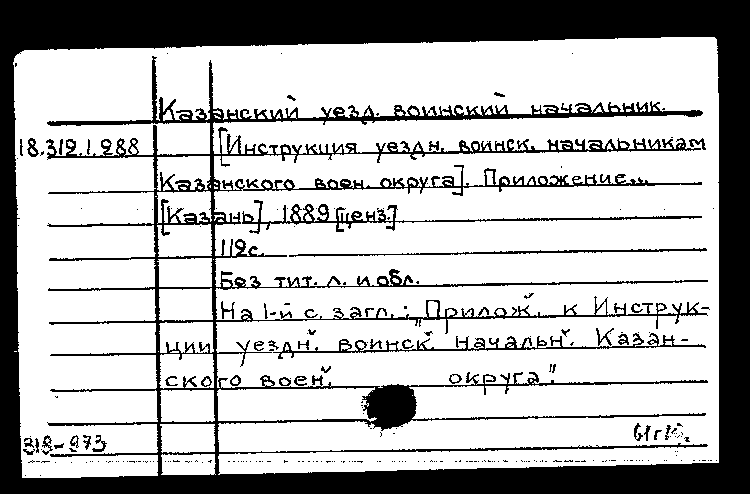 Казанский уезд. воинский начальник.
18.312.1.288 [Инструкция уездн. воинск. начальникам
Казанского воен. округа]. Приложение...
[Казань], 1889 [ценз.]
112 с.
Без тит. л. и обл.
На 1-й с. загл.: „Прилож. к Инструк-
ции уездн. воинск. начальн. Казан-
ского воен. округа."
318-973